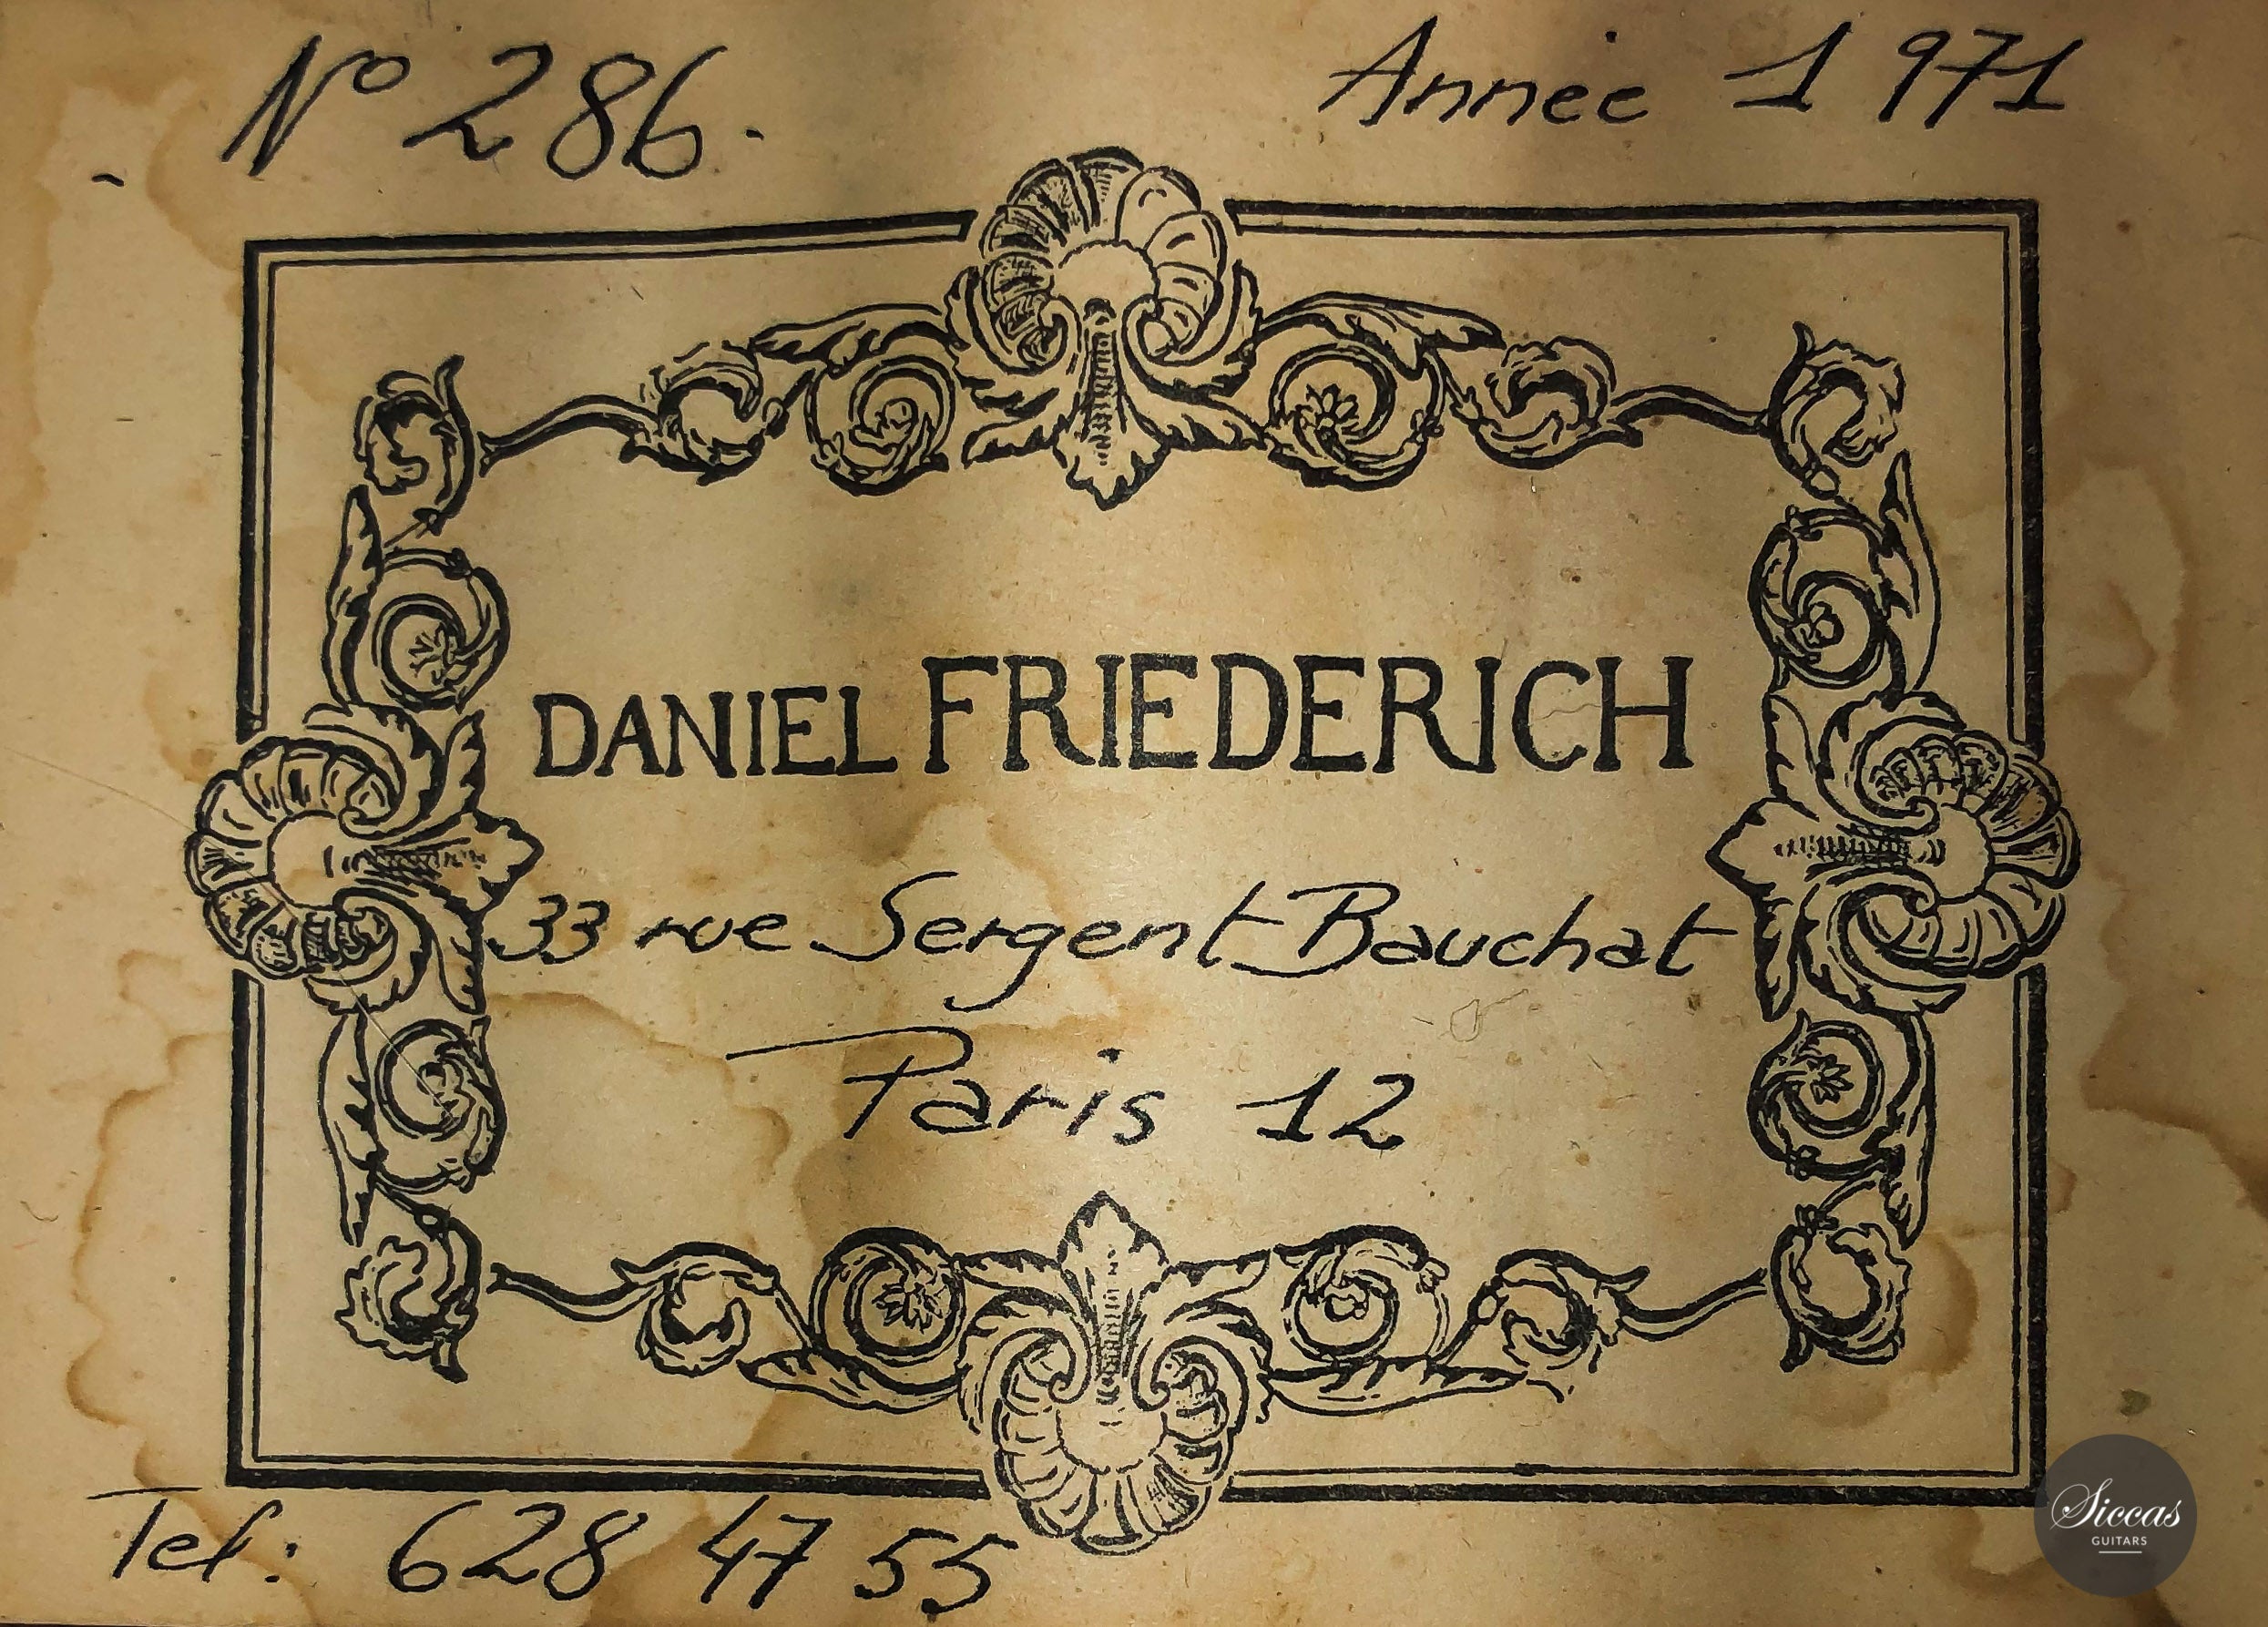 Nº 286.
Année 1971
DANIEL FRIEDERICH
33 rue Sergent Bauchat
Paris 12
Tel: 628 47 55
Siccas
GUITARS